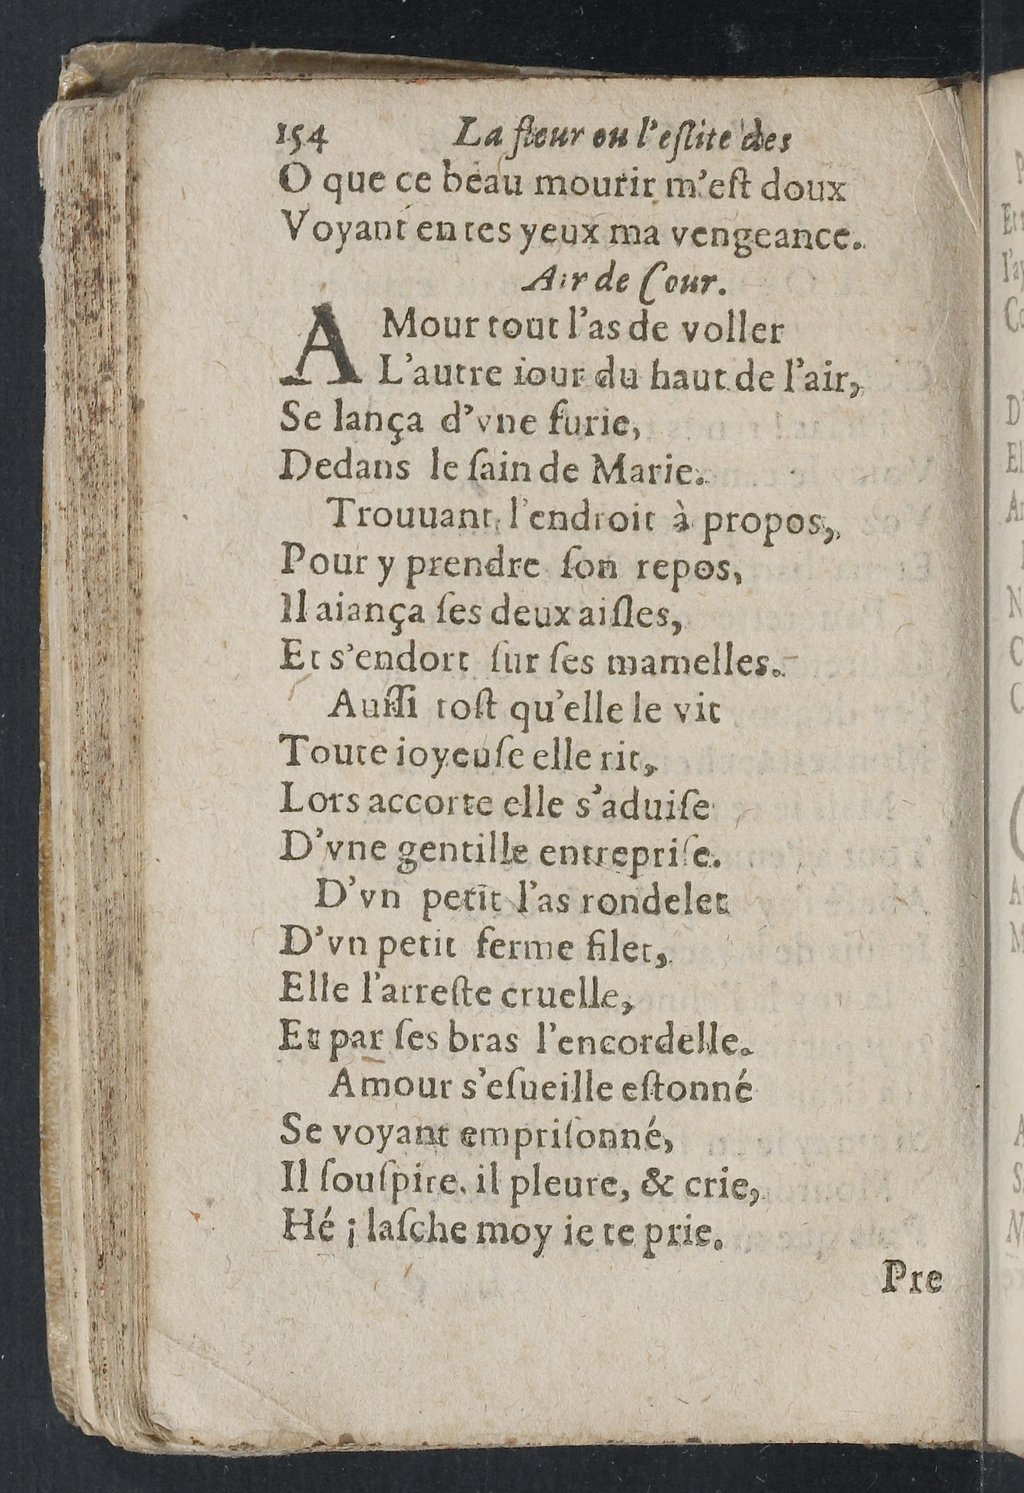 154 La fleur ou l'eslite des
O que ce beau mourir m'est doux
Voyant en tes yeux ma vengeance.
Air de Cour.
AMour tout l'as de voller
L'autre iour du haut de l'air,
Se lança d'vne furie,
Dedans le ſain de Marie.
Trouuant l'endroit à propos,
Pour y prendre ſon repos,
Il aiança ſes deux aiſles,
Et s'endort ſur ſes mamelles.
Auſſi toſt qu'elle le vit
Toute ioyeuſe elle rit,
Lors accorte elle s'aduiſe
D'vne gentille entrepriſe.
D'vn petit l'as rondelet
D'vn petit ferme filet,
Elle l'arreſte cruelle,
Et par ſes bras l'encordelle.
Amour s'eſueille eſtonné
Se voyant empriſonné,
Il ſouſpire, il pleure, & crie,
Hé ¡ laſche moy ie te prie.
Pre